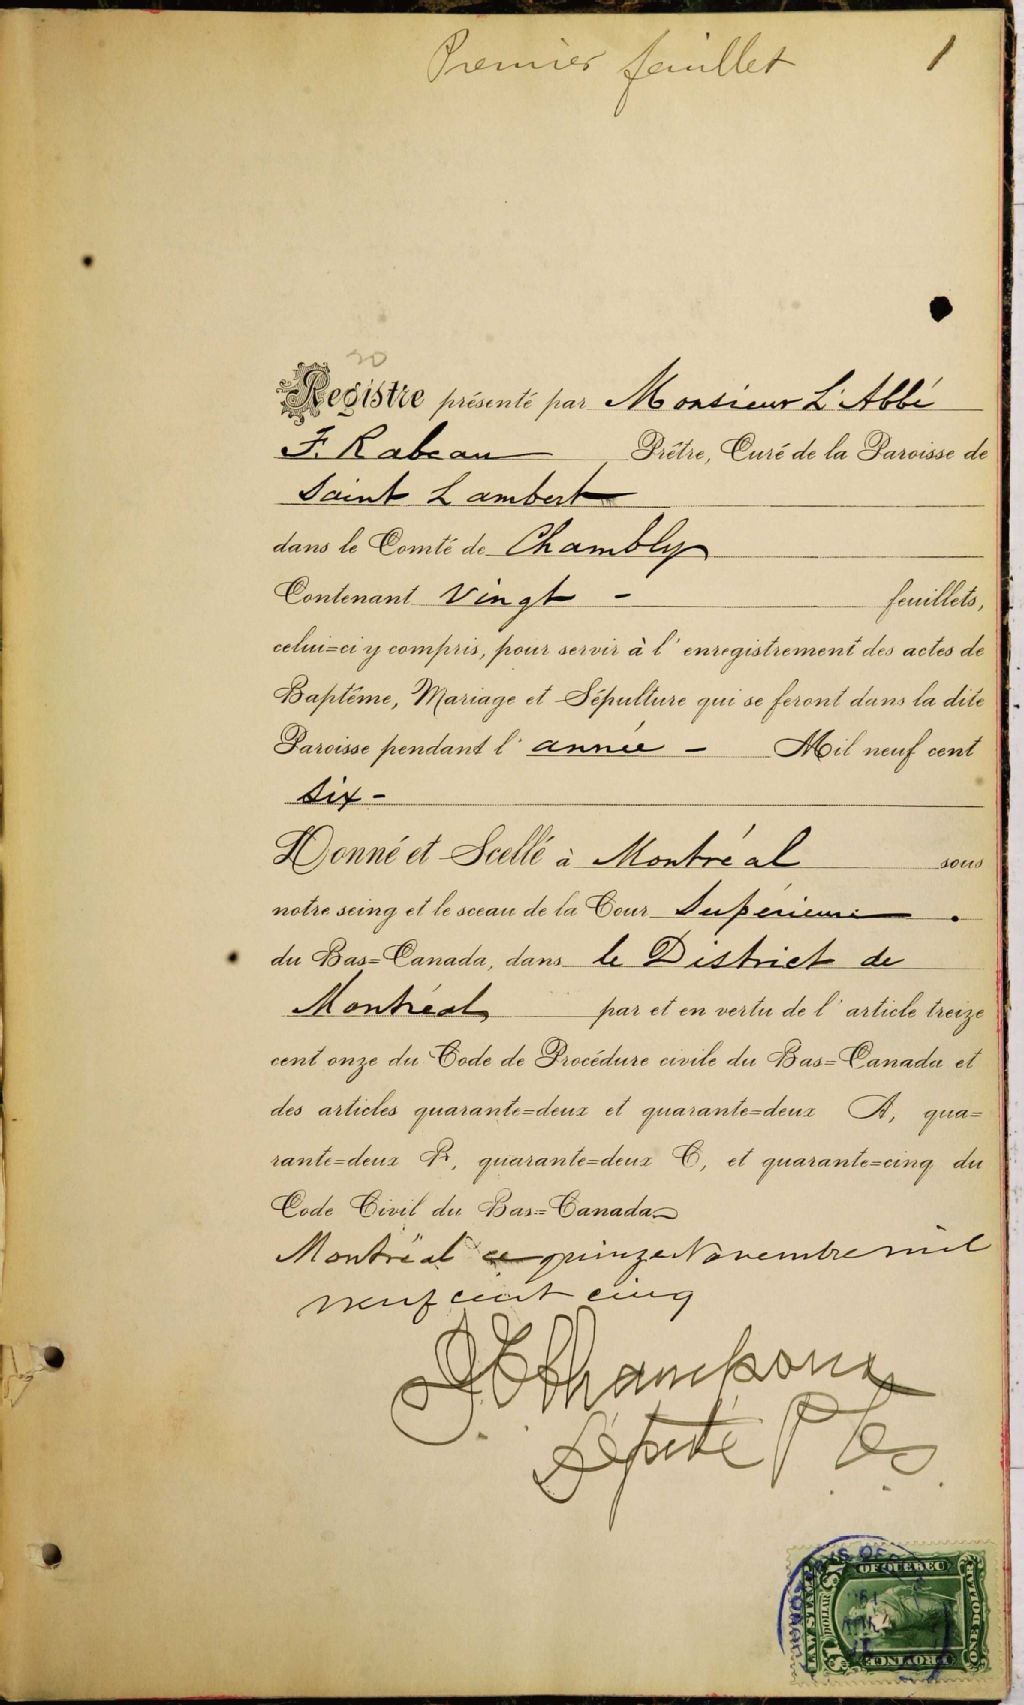 Premier feuillet 1
20
Registre présenté par Monsieur L'Abbé
F. Rabeau Prêtre, Curé de la Paroisse de
Saint Lambert
dans le Comté de Chambly
Contenant Vingt - feuillets,
celui=ci y compris, pour servir à l'enregistrement des actes de
Baptême, Mariage et Sépulture qui se feront dans la dite
Paroisse pendant l'année - Mil neuf cent
six -
Donné et Scellé à Montréal sous
notre seing et le sceau de la Cour Supérieure
du Bas=Canada, dans le District de
Montréal par et en vertu de l'article treize
cent onze du Code de Procédure civile du Bas=Canada et
des articles quarante=deux et quarante=deux A, qua=
rante=deux B, quarante=deux C, et quarante=cinq du
Code Civil du Bas=Canada
Montréal ce quinze Novembre mil
neuf cent cinq
Député P
PROVINCE OF QUEBEC
LAW STAMP
ONE DOLLAR
$1 DOLLAR